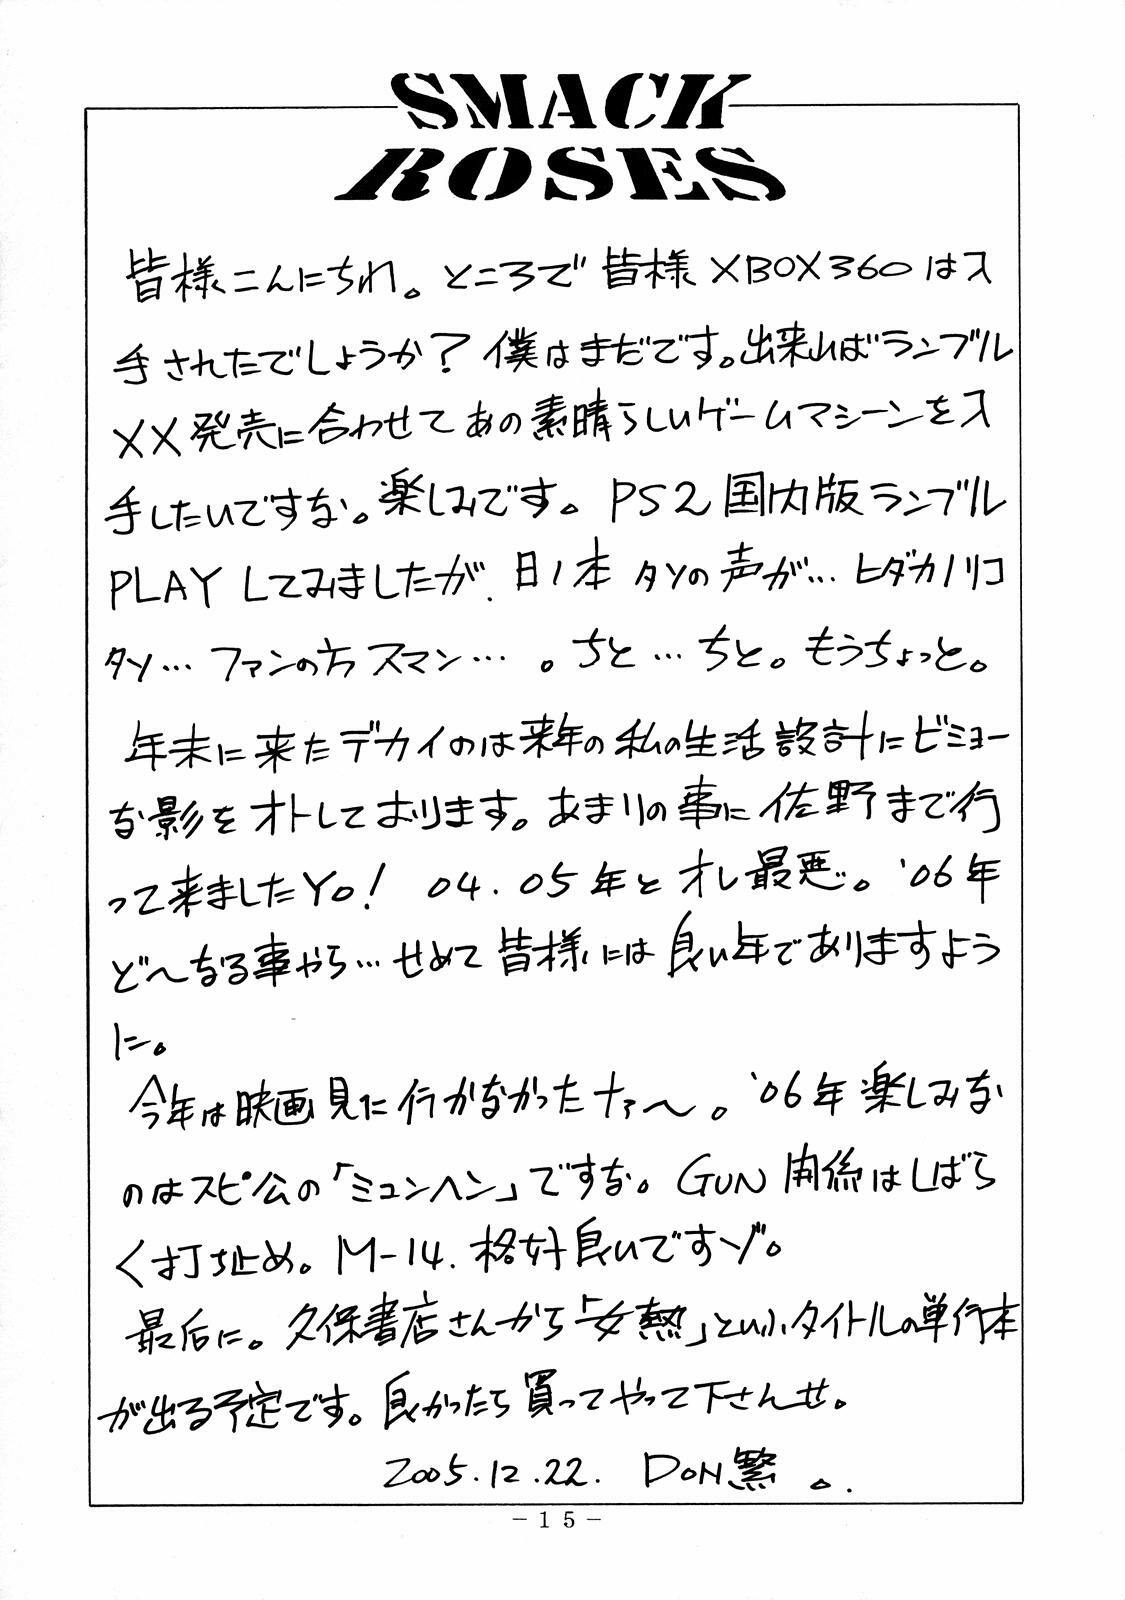 SMACK
ROSES
皆様こんにちわ。ところで皆様XBOX360は入
手されたでしょうか?僕はまだです。出来ればランブル
XX発売に合わせてあの素晴らしいゲームマシーンを入
手したいですな。楽しみです。PS2国内版ランブル
PLAYしてみましたが、日ノ本タソの声が…ヒダカノリコ
タソ…ファンの方スマン…。ちと…ちと。もうちょっと。
年末に来たデカイのは来年の私の生活設計にビミョー
な影をオトしております。あまりの事に佐野まで行
って来ましたYO!04.05年とオレ最悪。'06年
ど〜なる事やら…せめて皆様には良い年でありますよう
に。
今年は映画見に行かなかったナァ〜。'06年楽しみな
のはスピ公の「ミュンヘン」ですな。GUN関係はしばら
く打ち止め。M-14.格好良いですゾ。
最后に。久保書店さんから「女熱」という小タイトルの単行本
が出る予定です。良かったら買ってやって下さんせ。
2005.12.22. DON繁。.
－15－